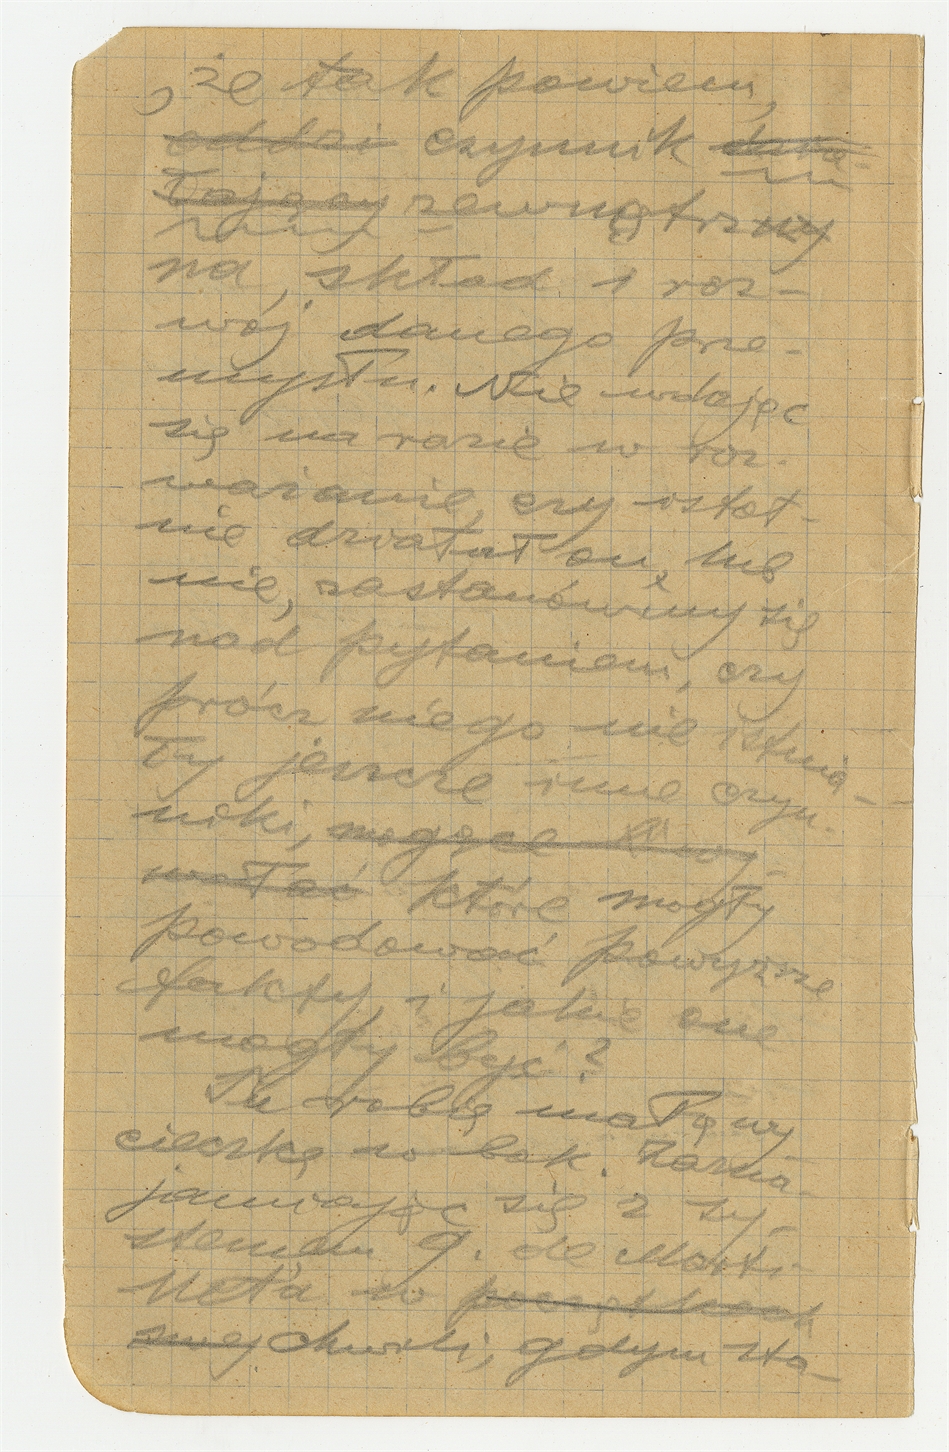 , że tak powiem,
oddzi czynnik dzia-
łający zewnętrzny
na skład i roz-
wój danego prze-
mysłu. Nie wdając
się na razie w roz-
ważanie, czy istot-
nie działał on, lub
nie, zastanówmy się
nad pytaniem, czy
prócz niego nie istnia-
ły jeszcze inne czyn-
niki, mogące wy
wołać które mogły
powodować powyższe
fakty, i jakie one
mogły być?
Tu robię małą wy
cieczkę w bok. Zazna-
jamiając się z sy-
stemem G. de Morti-
llet'a w początkach
swej chwili, gdym sta-